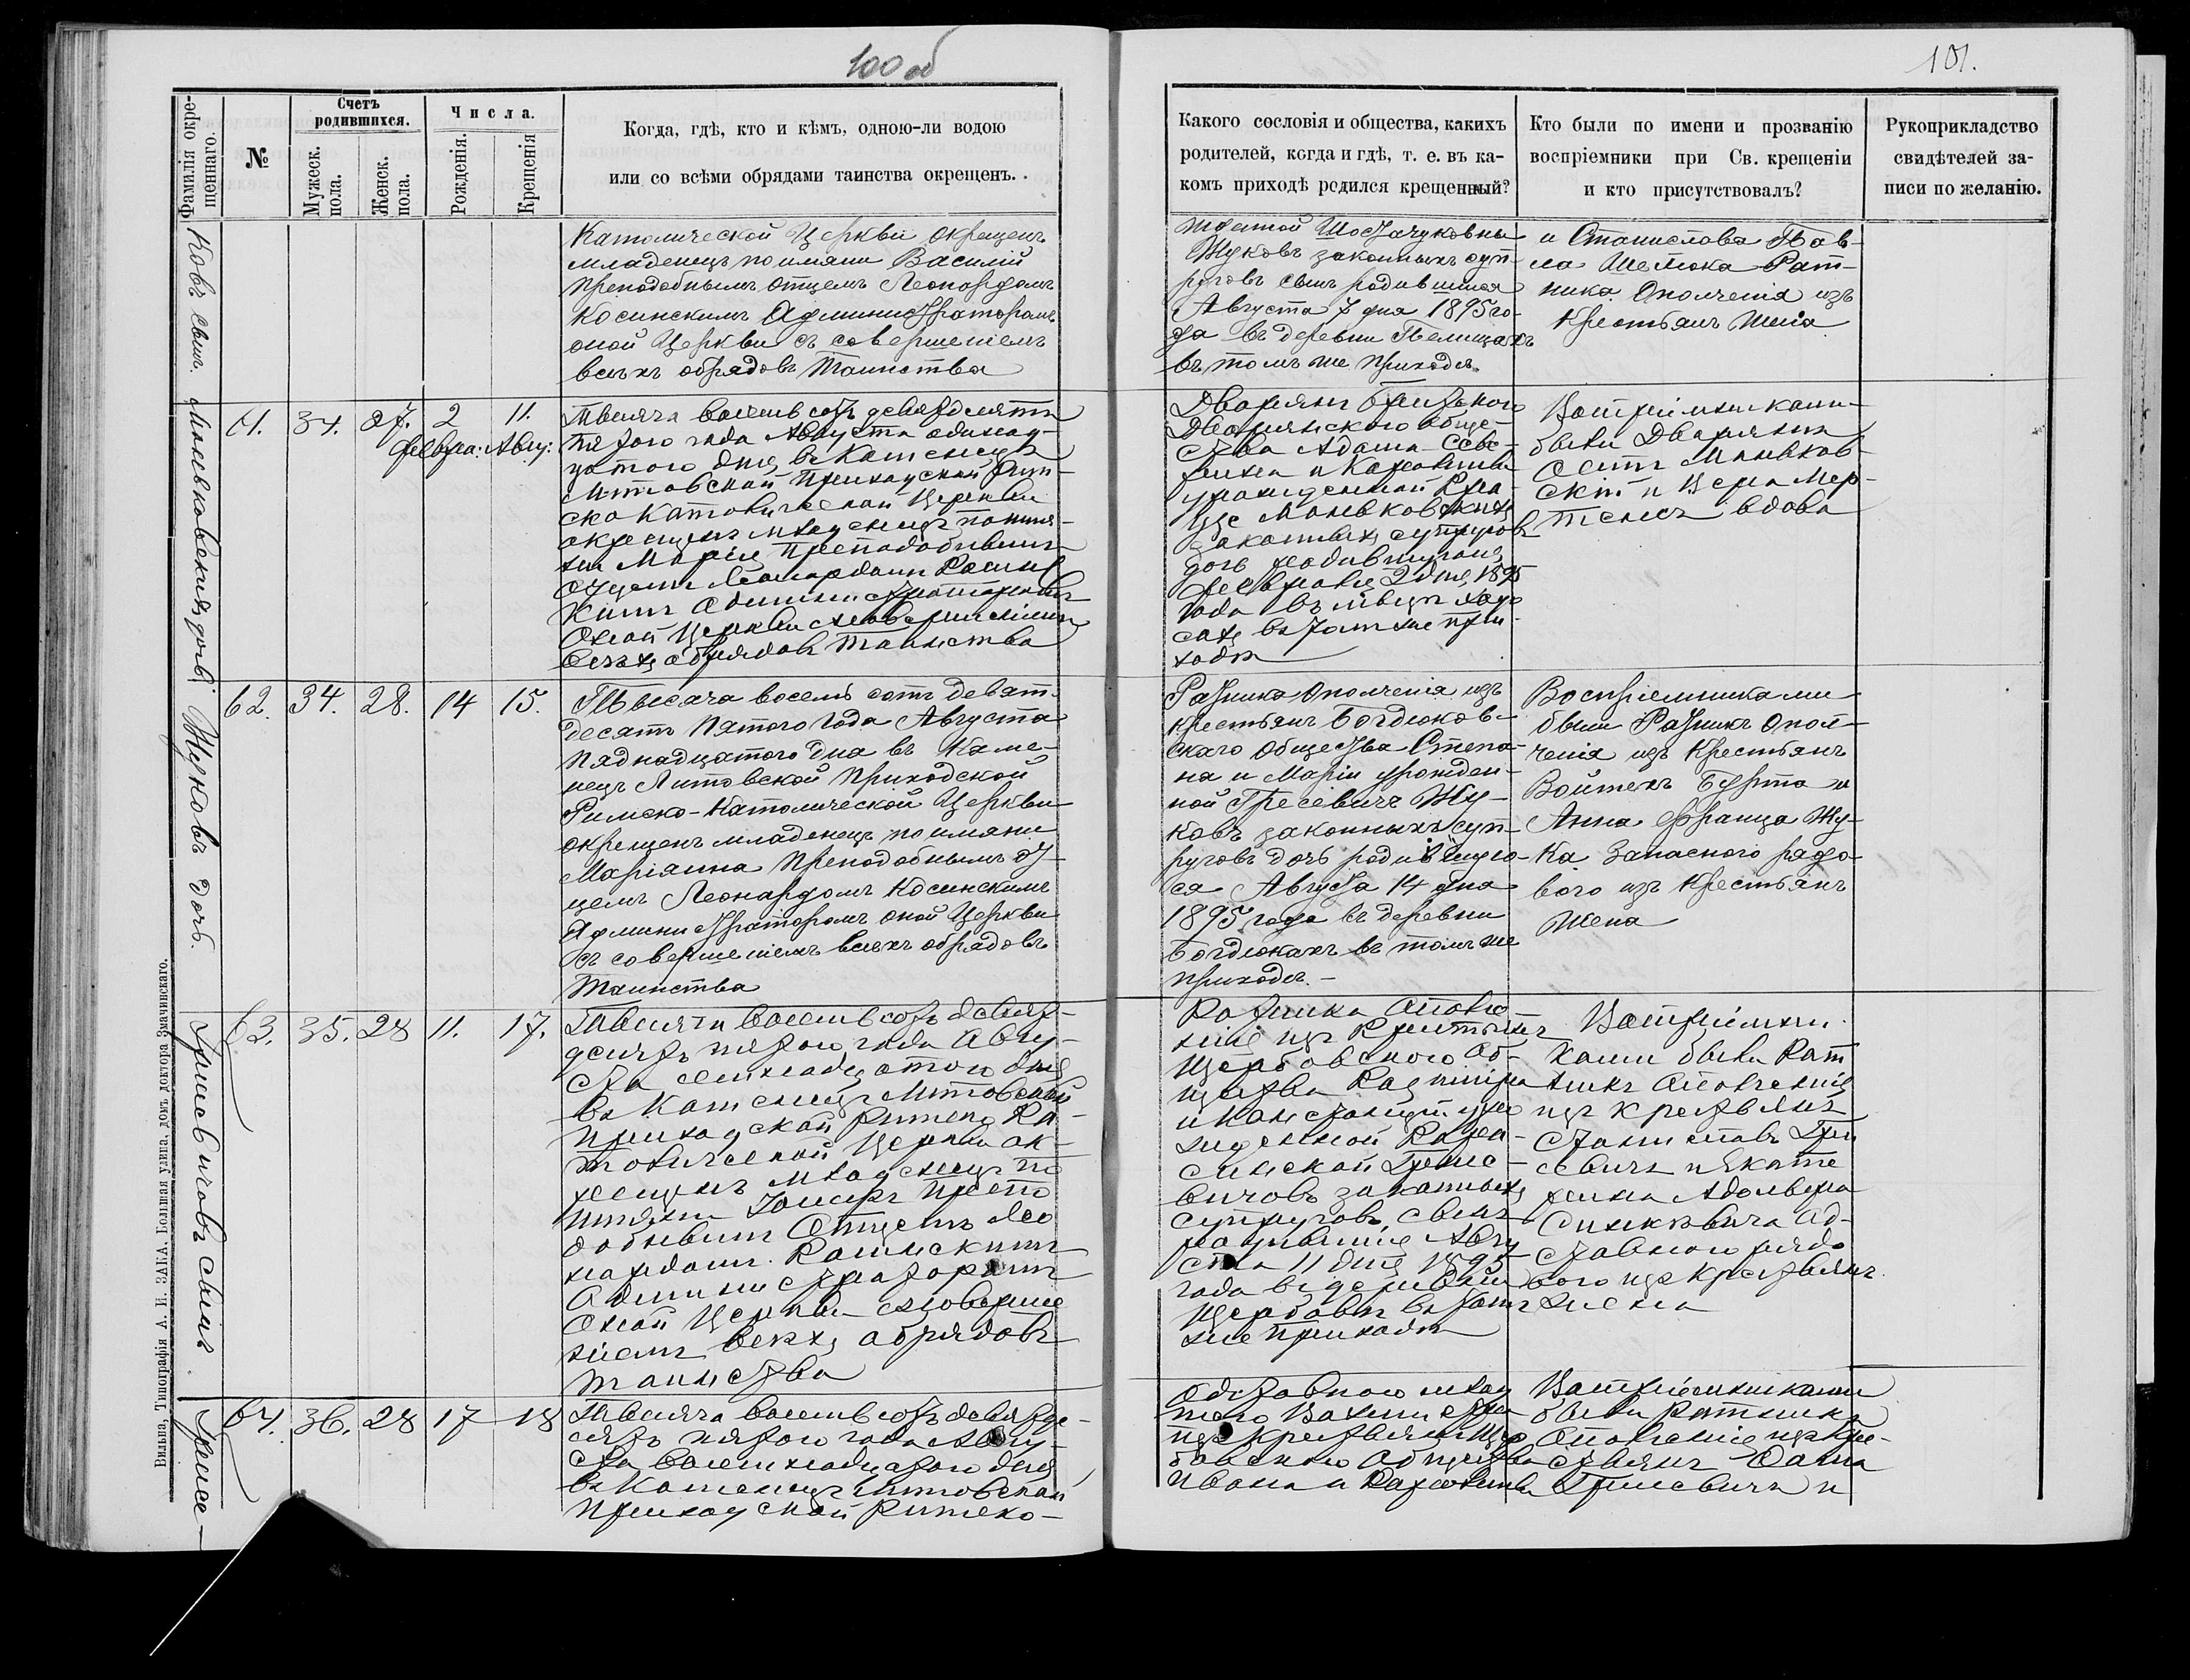 100 об
101.
Фамилія окре-
щеннаго.
№
Счетъ
родившихся.
Мужеск.
пола.
Женск.
пола.
Числа.
Рожденія.
Крещенія
Когда, гдѣ, кто и кѣмъ, одною-ли водою
или со всѣми обрядами таинства окрещенъ.
Какого сословія и общества, какихъ
родителей, когда и гдѣ, т. е. въ ка-
комъ приходѣ родился крещенный?
Кто были по имени и прозванію
воспріемники при Св. крещеніи
и кто присутствовалъ?
Рукоприкладство
свидѣтелей за-
писи по желанію.
ковъ сынъ.
Католической Церкви окрещенъ
младенецъ по имяни Василій
преподобнымъ отцемъ Леонардомъ
Косинскимъ Администраторомъ
оной Церкви съ совершеніемъ
всѣхъ обрядовъ Таинства
Жуковъ законныхъ суп-
руговъ сынъ родившійся
Августа 7 дня 1895 го-
да въ деревни Пелищахъ
въ томъ же приходѣ.
и Станислова Пав-
ла Ратника
Ополченія изъ
Крестьянъ Жена
Маньковскихъ дочь
61. 34. 27. 2 11.
Февра: Авгу:
Тысяча восемьсотъ девятдесять
пятого года Августа одинад-
цатого дня въ Каменецъ
Литовской Приходской Рим-
ско Католической Церкви
окрещенъ младенецъ по имя-
ни Марія Преподобнымъ
Отцемъ Леонардомъ Косинс
кимъ Администраторомъ
Оной Церкви съ совершеніемъ
всѣхъ обрядовъ Таинства
Дворянъ
Дворянского Обще-
ства Адама Севе-
рина и Каролины
урожденной
Маньковскихъ
законныхъ супруговъ
дочь родившуюся
Февраля 2 дня 1895
года въ
въ томъ же при-
ходѣ
Воспріемниками
были Дворянинъ
Маньковскій
и
вдова
Жуковъ дочь.
62. 34. 28. 14 15.
Тысяча восемь сотъ девят-
десятъ пятого года Августа
пяднадцатого дня въ Каме-
нецъ Литовской Приходской
Римско-Католической Церкви
окрещенъ младенецъ по имяни
Маріянна Преподобнымъ От-
цемъ Леонардомъ Косинскимъ
Администраторомъ оной Церкви
съ совершеніемъ всѣхъ обрядовъ
Таинства
Ратника Ополченія изъ
крестьянъ Богдюков-
скаго Общества Степа-
на и Маріи урожден-
ной Гресевичъ Жу-
ковъ законныхъ суп-
руговъ дочь родившую-
ся Августа 14 дня
1895 года въ деревни
Богдюкахъ въ томъ же
приходѣ.
Воспріемниками
были Ратникъ Опол-
ченія изъ Крестьянъ
Войтехъ Бурта и
Анна Франца Жу-
ка Запасного рядо-
вого изъ Крестьянъ
Жена
Гресевичовъ сынъ
63. 35. 28 11. 17.
Тысяча восемьсотъ девят-
десятъ пятого года Авгу-
ста семнадцатого дня
въ Каменецъ Литовской
Приходской Римско Ка-
толической Церкви ок-
рещенъ младенецъ по
имяни Іосифъ Препо
добнымъ Отцемъ Лео
нардомъ Косинскимъ
Администраторомъ
Оной Церкви съ соверше
ніемъ всѣхъ обрядовъ
таинства
Ратника Ополче-
нія изъ Крестьянъ
Щербовского Об-
щества Казиміра
и Констанціи уро
жденной
Гресе-
вичовъ законныхъ
супруговъ, сынъ
родившійся Авгу
ста 11 дня 1895
года въ деревни
Щербовѣ въ томъ
же приходѣ
Воспріемни-
ками были Рат
никъ Ополченія
изъ крестьянъ
Станиславъ Гри
севичъ и Екате
рина Адольфа
Синкевича От-
ставного рядо
вого изъ крестьянъ
жена
Гресе-
64. 36. 28 17 18
Тысяча восемьсотъ девятде-
сятъ пятого года Авгу-
ста восемнадцатого дня
въ Каменецъ Литовской
Приходской Римско-
Отставного млад
шего
изъ крестьянъ Щер
бовского Общества
Ивана и Каролины
Воспріемниками
были Ратникъ
Ополченія изъ кре-
стьянъ Фома
Гресевичъ и
Вильна, Типографія А. И. ЗАКА. Большая улица, домъ доктора Змачинскаго.